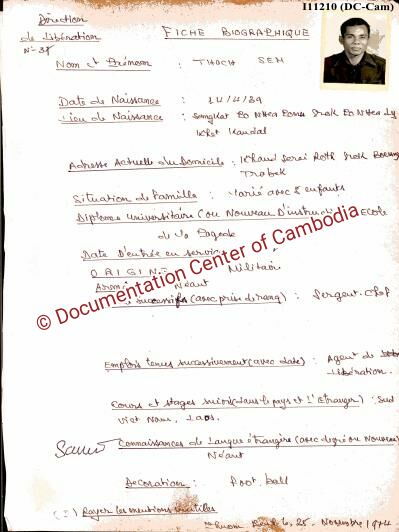 111210 (DC-Cam)
Direction
de Libération
N-37
FICHE BIOGRAPHIQUE
Nom et Prénom : THOCH SEM
Date de Naissance : 14/4/39
Lieu de Naissance : Sangkat Po Nhea Srok Po Nhea Ly
Khet Kandal
Adresse Actuelle du Domicile : Khand Serei Roth Srok Boeung
Trabek
Situation de Famille : Marié avec 8 enfants
Diplôme Universitaire (ou Nouveau D'instruction Ecole
de la Pagode
Date D'entrée en service
ORIGINE Militaire
Arme Néant
successifs (avec prise de rang) : Sergent-Chef
Emplois tenus successivement (avec date) : Agent de
Libération.
Cours et stages suivis (dans le pays et L'Etranger) : Sud
Viet Nam, Laos.
Connaissances de Langue étrangère (avec degré ou Nouveau)
Néant
Decoration : Foot-ball
(I) Rayer les mentions inutiles
Phnom Penh le 25 Novembre 1974
© Documentation Center of Cambodia